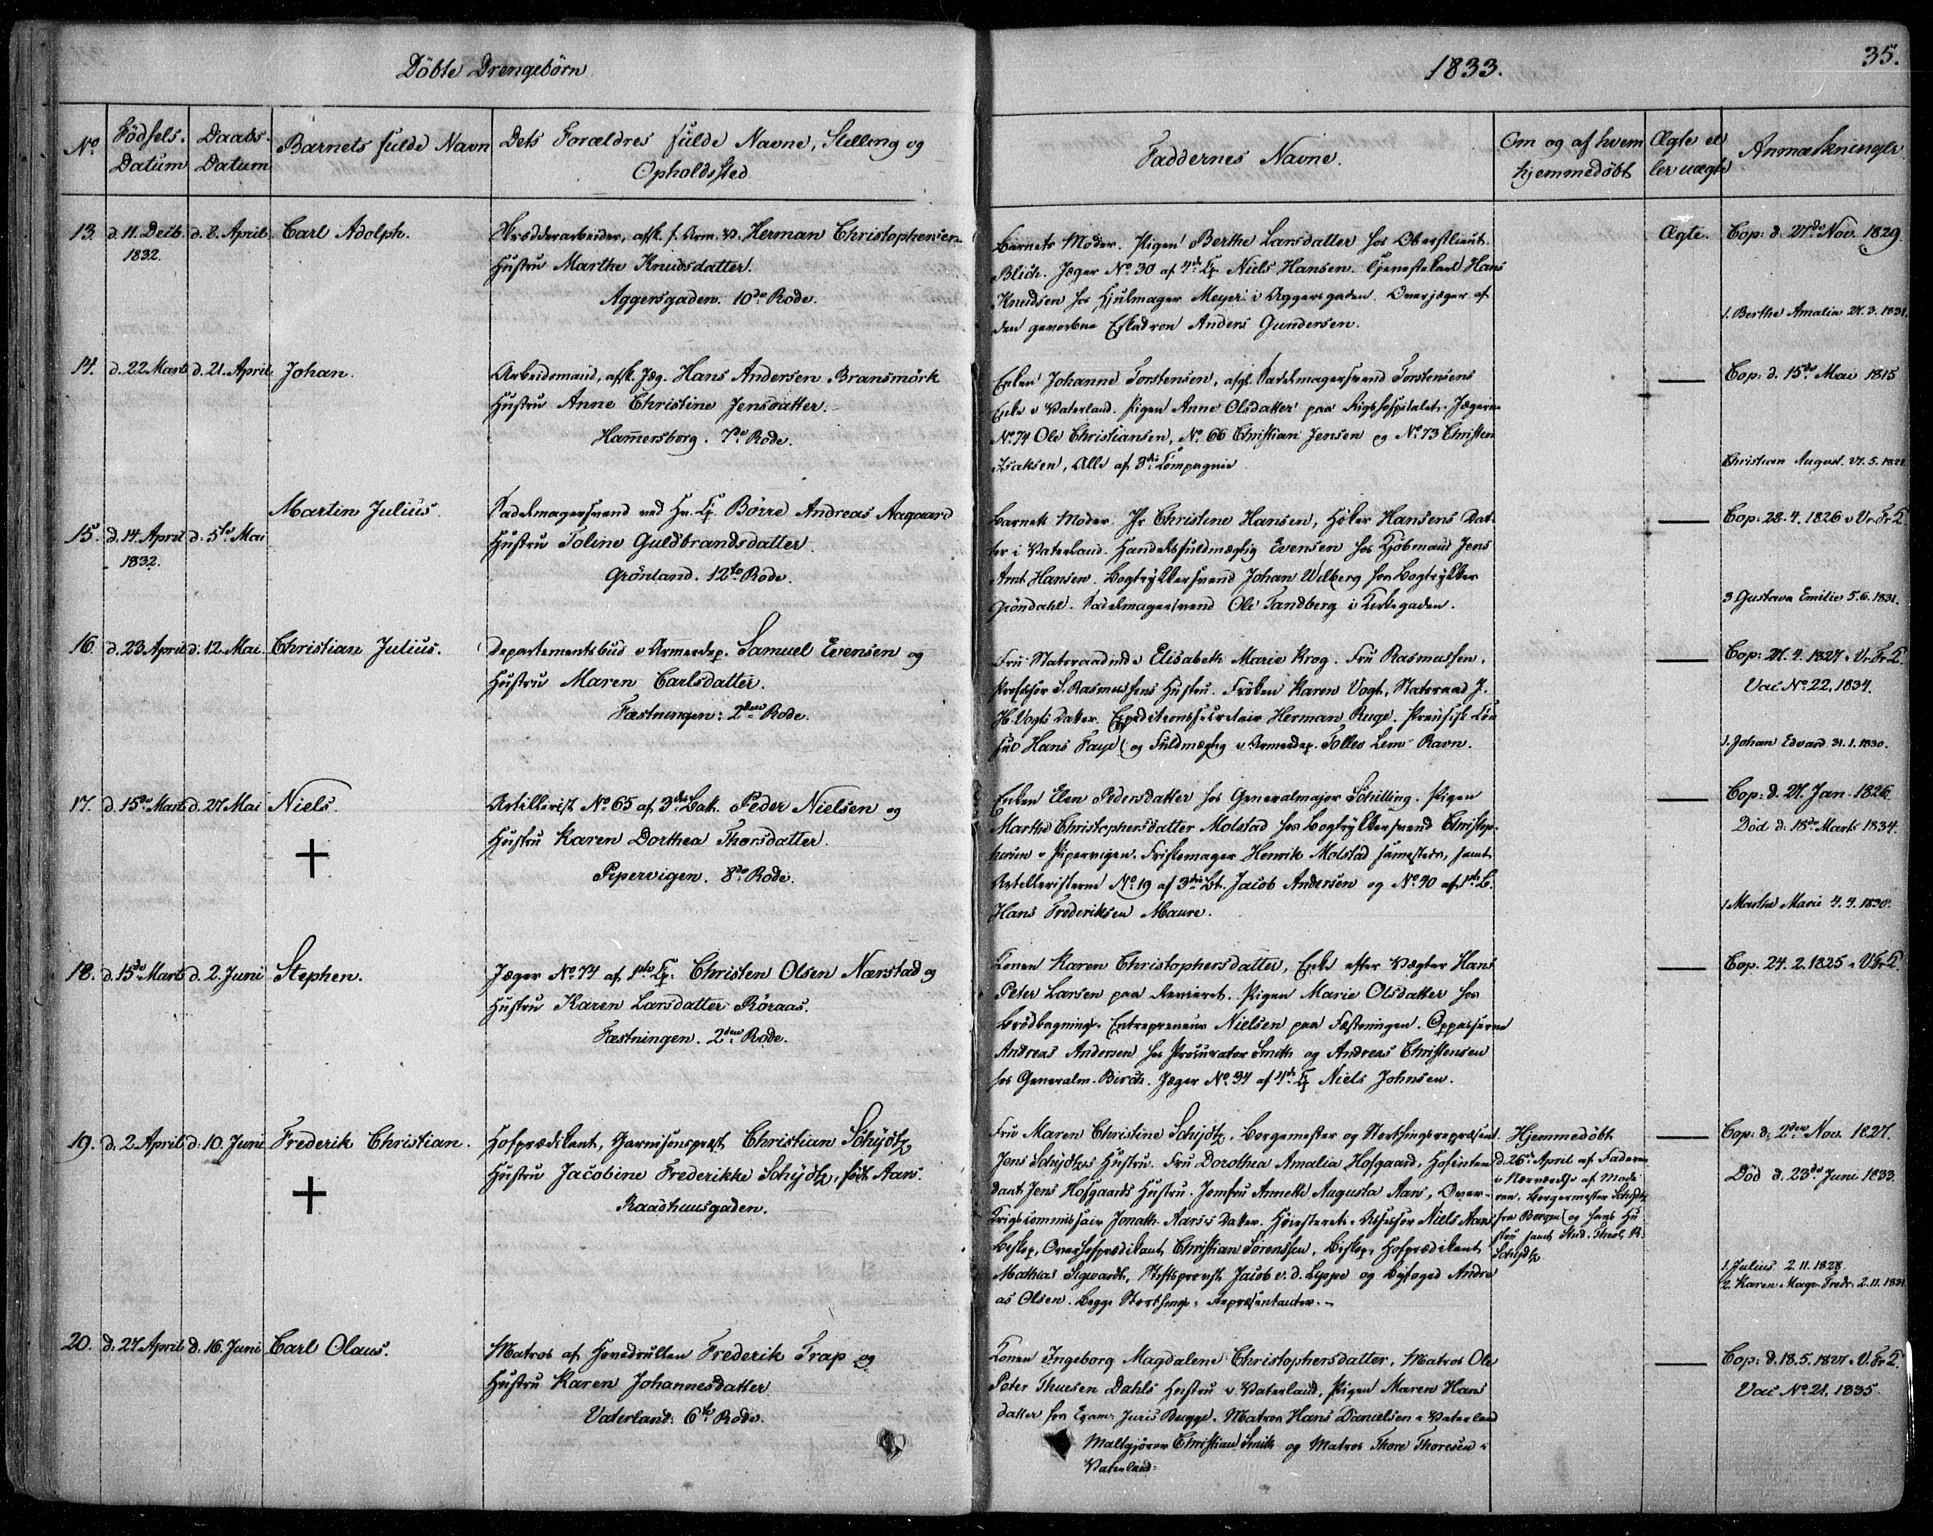 Döbte Drengebörn
1833.
35.
No
Födsels-
Datum
Daabs-
Datum
Barnets fulde Navn
Dets Forældres fulde Navne, Stilling og
Opholdssted
Faddernes Navne.
Om og af hvem
hjemmedøbt
Ægte el
ler uægte
Anmærkninger
13. d. 11. Decb. d. 8. April. Carl Adolph.
1832.
Skrædderarbeider, afsk. f. Arm. v. Herman Christophersen
Hustru Marthe Knudsdatter.
Aggersgaden. 10de Rode.
Barnets Moder. Pigen Berthe Larsdatter hos Oberstlieut.
Blich. Jæger No. 30 af 4de Cp. Niels Hansen. Tjenestekarl Hans
Knudsen hos Hjulmager Meyer i Aggersgaden. Overjæger af
den gevorbne Eskadron Anders Gundersen.
Ægte.
Cop: d. 27de Nov. 1829.
1. Berthe Amalia 27.3.1831.
14. d. 22 Marts d. 21. April Johan.
Arbeidsmand, afsk. Jæg. Hans Andersen Bransmörk
Hustru Anne Christine Jensdatter.
Hammersborg. 7de Rode.
Enken Johanne Torstensen, afg. Sadelmagersvend Torstensens
Enke i Vaterland. Pigen Anne Olsdatter paa Rigshospitalet. Jægerne
No. 74 Ole Christiansen, No. 66 Christian Jensen og No. 73 Christen
Isaksen, Alle af 3die Compagnie
Cop: d. 15de Mai 1815
Christian August. 27.5.1821
15. d. 14. April d. 5te Mai Martin Julius.
1832.
Sadelmagersvend ved Hr. Cp. Börre Andreas Aagaard
Hustru Toline Guldbrandsdatter.
Grönland. 12te Rode.
Barnets Moder. Jfr Christine Hansen, Höker Hansens Dat-
ter i Vaterland. Handelsfuldmægtig Evensen hos Kjöbmand Jens
Arnt Hansen. Bogtrykkersvend Johan Wilberg hos Bogtrykker
Gröndahl. Sadelmagersvend Ole Tandberg i Kirkegaden.
Cop: 28.4.1826 i Vr. Fr. K.
3. Gustava Emilie 5.6.1831.
16. d. 23 April d. 12. Mai Christian Julius.
Departementsbud v. Armeedep. Samuel Evensen og
Hustru Maren Carlsdatter.
Fæstningen: 2den Rode.
Fru Statsraadinde Elisabeth Marie Krog. Fru Rasmussen,
Professor S. Rasmussens Hustru. Fröken Karen Vogt, Statsraad J.
H. Vogts Datter. Expeditionssecretair Herman Ruge. Preusisk Con-
sul Hans Faye og Fuldmægtig v. Armeedep. Tollev Lem Ravn.
Cop: 27.4.1827 i Vr. Fr. K.
Vac No. 22, 1834.
1. Johan Edvard 31.1.1830.
17. d. 15de Marts d. 27 Mai Niels.
Artillerist No. 65 af 3die Bat. Peder Nielsen og
Hustru Karen Dorthea Thorsdatter.
Pipervigen. 8de Rode.
Enken Elen Pedersdatter hos Generalmajor Schilling. Pigen
Marthe Christophersdatter Molstad hos Bogtrykkersvend Christop-
hersen i Pipervigen. Friskemager Henrik Molstad sammesteds, samt
Artilleristerne No. 19 af 3die Bt. Jacob Andersen og No. 40 af 1ste B.
Hans Frederiksen Maure.
Cop: d. 27. Jan. 1826.
Död d: 18de Marts 1834.
1. Martha Marie 4.4.1830.
18. d. 15de Marts d. 2. Juni Stephen.
Jæger No. 74 af 1ste Cp: Christen Olsen Nærstad og
Hustru Karen Larsdatter Röraas.
Fæstningen. 2den Rode.
Konen Karen Christophersdatter, Enke efter Vægter Hans
Peter Larsen paa Revieret. Pigen Marie Olsdatter hos
Brödbagnings-Entrepreneur Nielsen paa Fæstningen. Oppasserne
Andreas Andersen hos Procurator Smith og Andreas Christensen
hos Generalm. Birch. Jæger No. 34 af 4de Cp Niels Johnsen.
Cop. 24.2.1825 i V. Fr. K.
19. d. 2 April d. 10. Juni Frederik Christian.
Hofprædikant, Garnisonsprest Christian Schydtz,
Hustru Jacobine Frederikke Schydtz, födt Aars.
Raadhuusgaden.
Fru Maren Christine Schydtz, Borgemester og Storthingsrepræsent.
Jens Schydtzes Hustru. Fru Dorothea Amalia Hofgaard, Hofinten-
dant Jens Hofgaards Hustru. Jomfru Annette Augusta Aars, Over-
krigscommissair Jonath. Aars's Datter. Höiesterets-Assessor Niels Aars
Biskop, Overhofprædikant Christian Sörenssen, Biskop, Hofprædikant
Mathias Sigwardt, Stiftsprovst Jacob v. d. Lippe og Byfoged Andre
as Olsen. Begge Storthings-Repræsentanter.
Hjemmedöbt
d. 26de April af Faderen
i Nærværelse af Mode-
ren, Borgermester Schydtz
fra Bergen og hans Hu
stru samt Stud. Theol.
Schydtz
Cop: d: 2den Nov. 1827.
Död d. 23de Juni 1833.
1. Julius 2.11.1828.
2. Karen Magr. Fredr. 2.11.1831
20. d. 27 April d. 16. Juni Carl Olaus.
Matros af Hovedrullen Frederik Trap og
Hustru Karen Johannesdatter
Vaterland: 6te Rode.
Konen Ingeborg Magdalene Christophersdatter, Matros Ole
Peter Thuesen Dahls Hustru i Vaterland, Pigen Maren Hans
datter hos Exam: Juris Bugge. Matros Hans Danielsen i Vaterland
Maltgjörer Christian Smith og Matros Thore Thoresen i
Vaterland.
Cop: d. 18.5.1827 i V. Fr. K.
Vac No. 21. 1835.